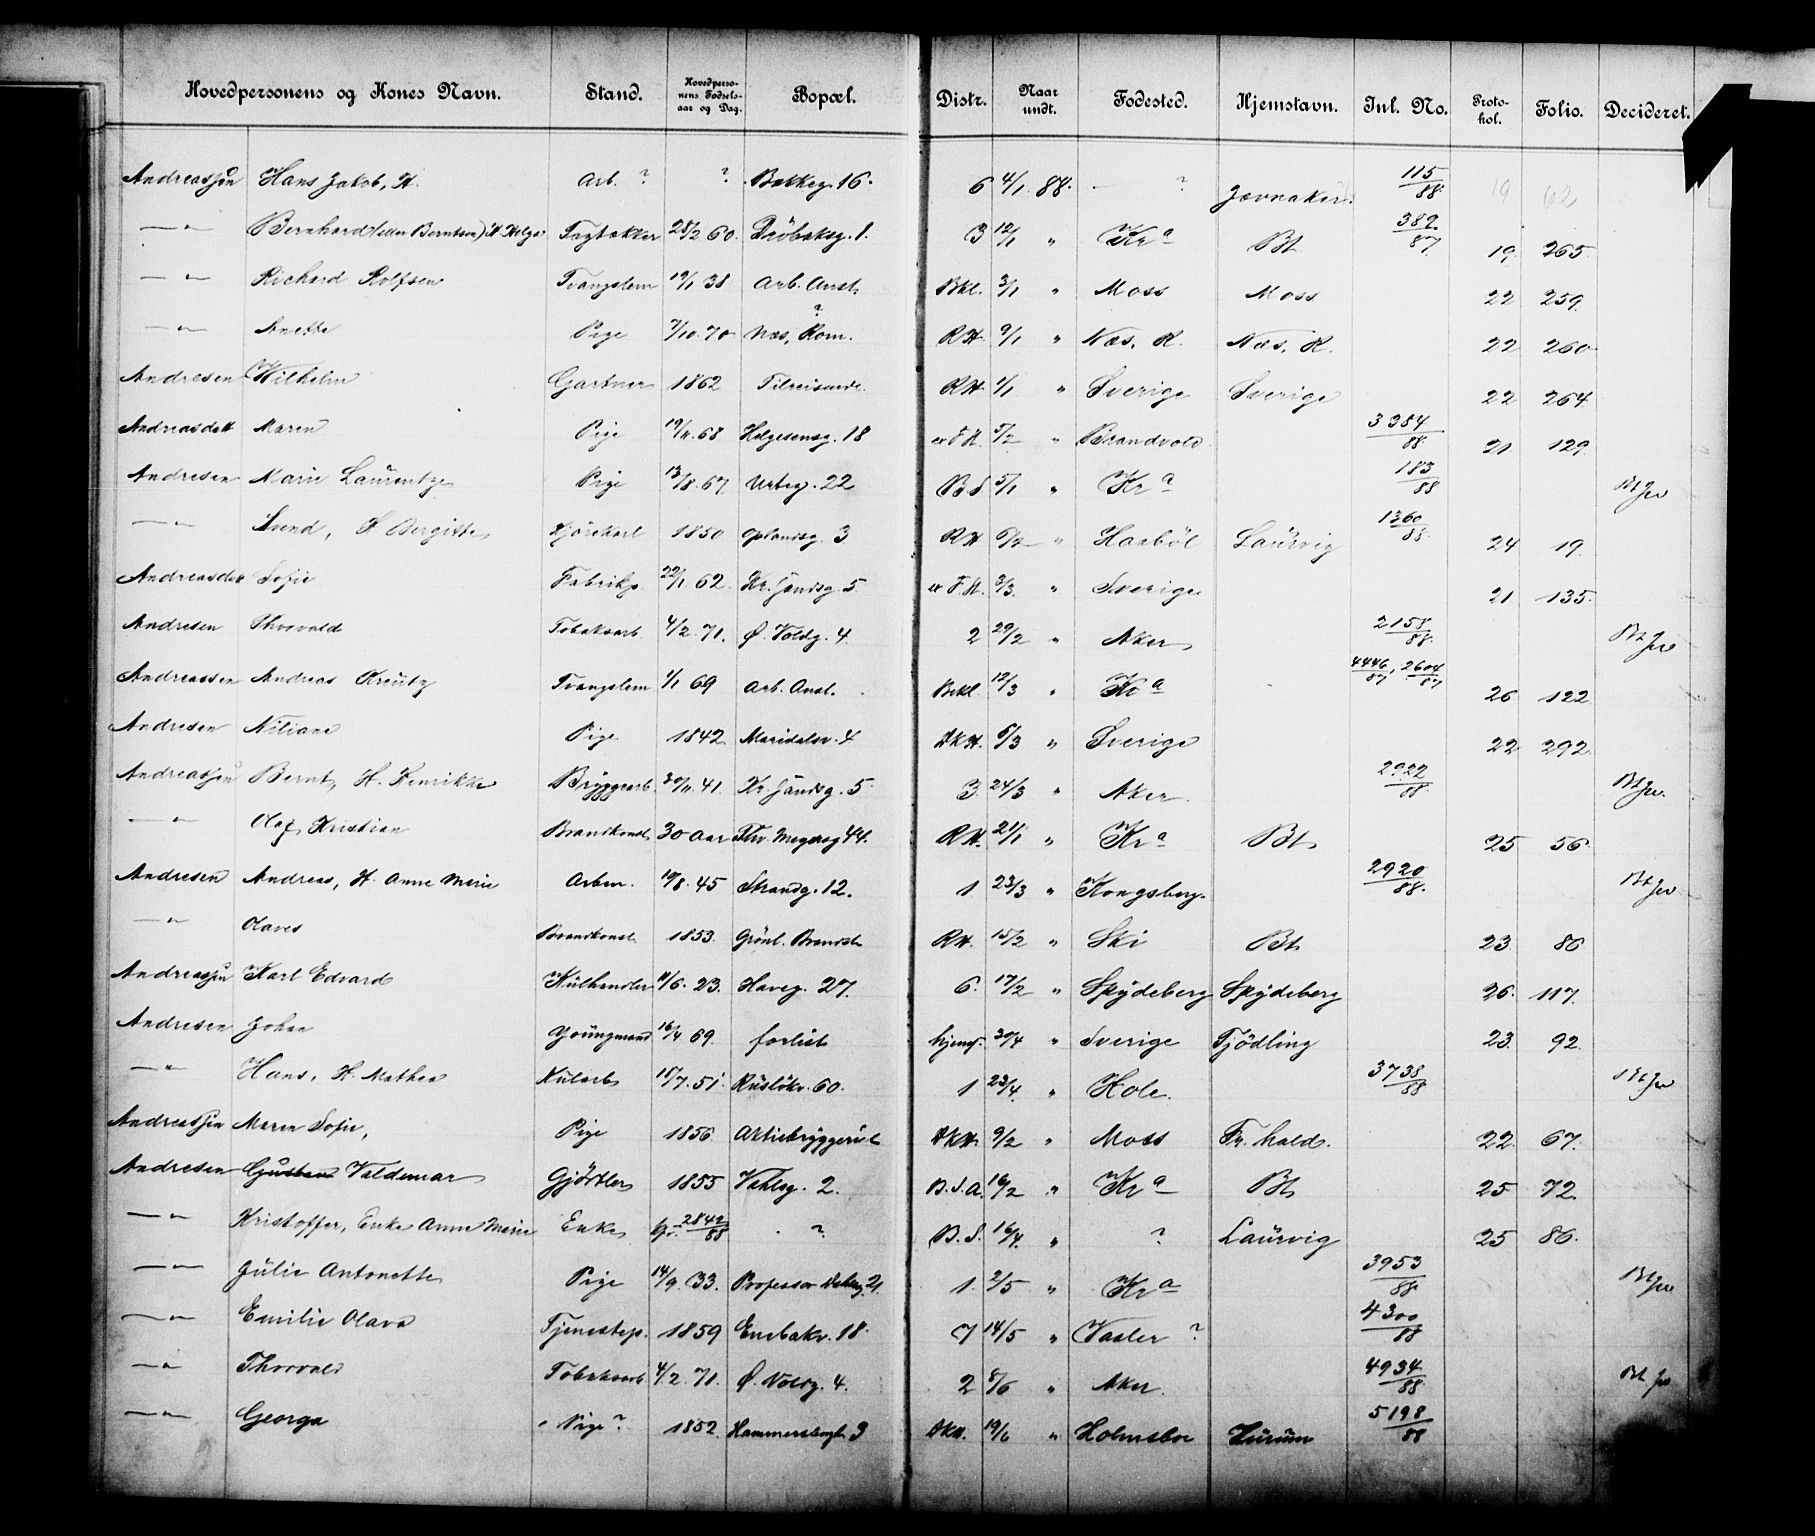 Hovedpersonens og Kones Navn. Stand. Hovedpersonens Fødselsaar og Dag. Bopæl. Distr. Naar undt. Fødested. Hjemstavn. Inl. No. Protokol. Folio. Decideret.
Andreassen Hans Jakob, H. Arb. ? ? Bakkeg. 16. 6 4/1 88. - ? Jævnaker. 115/88 19 62
—"— Bernhard (eller Berntsen) H. Helga Tagtækker 28/2 60. Drøbaksg. 1. 3 12/1 " Kra Bt 382/87 19 265
—"— Richard Rolfsen Tvangslem 19/1 38 Arb. Anst. Bkl. 3/1 " Moss Moss 22 259
—"— Anette Pige 7/10 70 Næs, Rom. ? RH. 9/1 " Næs, R. Næs, R. 22 260
Andresen Wilhelm Gartner 1862 Tilreisende. RH. 1/1 " Sverige Sverige 22 264
Andreasdatt Maren Pige 19/11 68 Helgesensg. 18 F.St. 5/2 " Brandvold 3384/88 21 129
Andresen Marie Laurentze Pige 13/8 67 Urteg. 22 B.S 5/1 " Kra 183/88
—"— Svend, H Bergitte Kjørekarl 1850 Oplandsg. 3 RH 6/2 " Laurvig 1360/88 24 19
Andreasdatt Sofie Fabrikp 22/1 62 Kr. Gandsg. 5. F.St. 3/3. " Sverige 21 135
Andresen Thorvald Tobaksarb. 4/2 71. Ø. Voldg. 4. 2 29/2 " Aker 2158/88
Andreassen Andreas Kreutz Tvangslem 1/1 69 Arb. Anst. Bkl. 12/3 " Kra 4446/87, 2604/87 26 122
Andresen Nitiane Pige 1842 Maridalsv. 4 AKH. 6/3 " Sverige 22 292
Andreassen Bernt, H. Henrikke Bryggearb. 30/11 41. Kr. Gandsg. 5 3 24/3 " Aker 2922/88
—"— Olaf Kristian Brandkonst. 30 Aar Thv. Meyersg 44. RH. 21/1 " Kra Bt 25 56
Andresen Andreas, H. Anne Marie Arbm. 19/8 45 Strandg. 12. 1 23/3 " Kongsberg. 2920/88
—"— Olaves Brandkonst. 1853. Grønl. Brandst RH. 15/2 " Ski Bt 23 86
Andreassen Karl Edvard Kulhandler 11/6 23. Haveg. 27. 6. 17/2 " Spydeberg Spydeberg 26 117
Andresen Johan Youngmand 16/4 69. forlist hjemf. 30/4 " Sverige Tjødling 23 92
—"— Hans, H. Mathea Kularb 15/7 51. Ruseløkv. 60. 1 23/4 " Hole. 3738/88
Andreassen Maren Sofie, Pige 1856 Aktiebryggeriet AKH. 9/2 " Moss Fr.hald. 22 67.
Andresen Gustav Valdemar Gjørtler 1855 Vahlsg. 2. B.S.A. 16/2 " Kra Bt 25 72
—"— Kristoffer, Enke Anne Marie Enke 2842/88 ? B.S. 16/4 " ? Laurvig 25 86.
—"— Julie Antonette Pige 14/9 33. Professor Dahlsg. 21. 1. 2/5 " Kra 3953/88
—"— Emilie Olava Tjenestep. 1859 Enebakv. 18. 7 14/5 " Vaaler ? 4300/88
—"— Thorvald Tobaksarb 4/2 71. Ø. Voldg. 4. 2 8/6 " Aker. 4934/88
—"— Georga Pige ? 1852. Hammersborgt 9 AKH. 19/6 " Holmsboe Hurum 5198/88